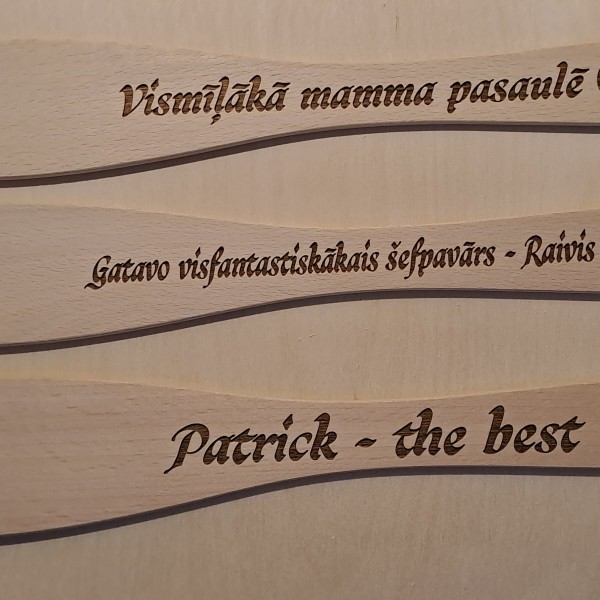 Vismīļākā mamma pasaulē
Gatavo visfantastiskākais šefpavārs - Raivis
Patrick - the best